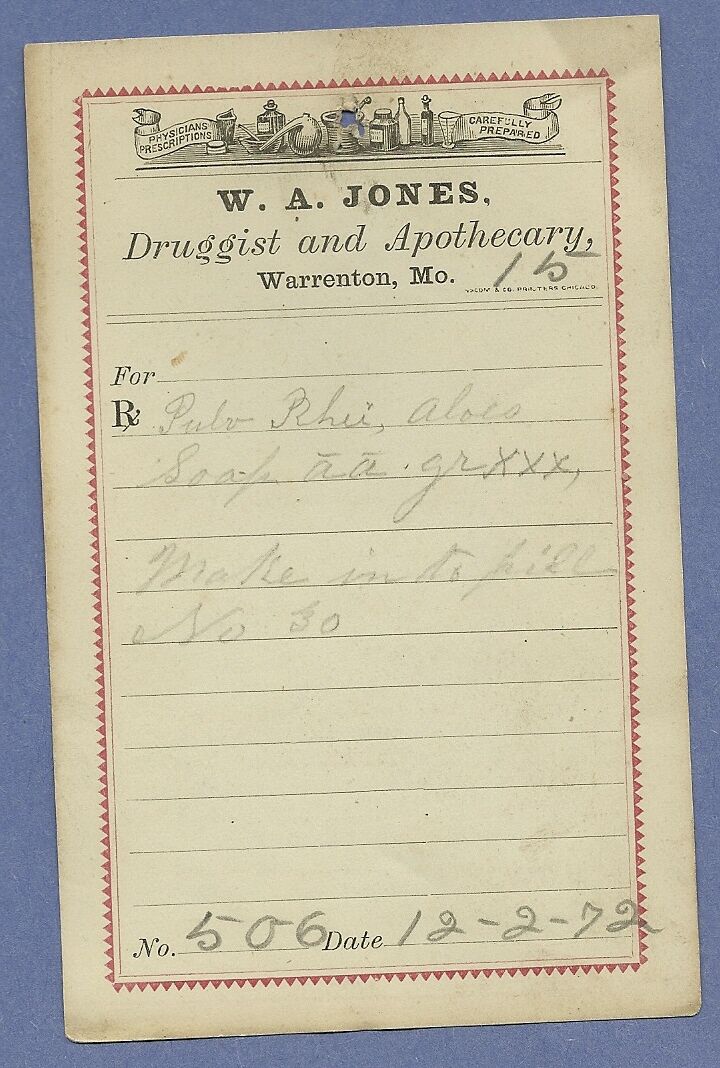 PHYSICIANS' PRESCRIPTIONS
CAREFULLY PREPARED
W. A. JONES,
Druggist and Apothecary,
Warrenton, Mo. 15
& CO. PRINTERS CHICAGO.
For
Rx Pulv Rhei, Aloes
Soap āā gr xxx,
Make in to pill
No 30
No. 506 Date 12-2-72